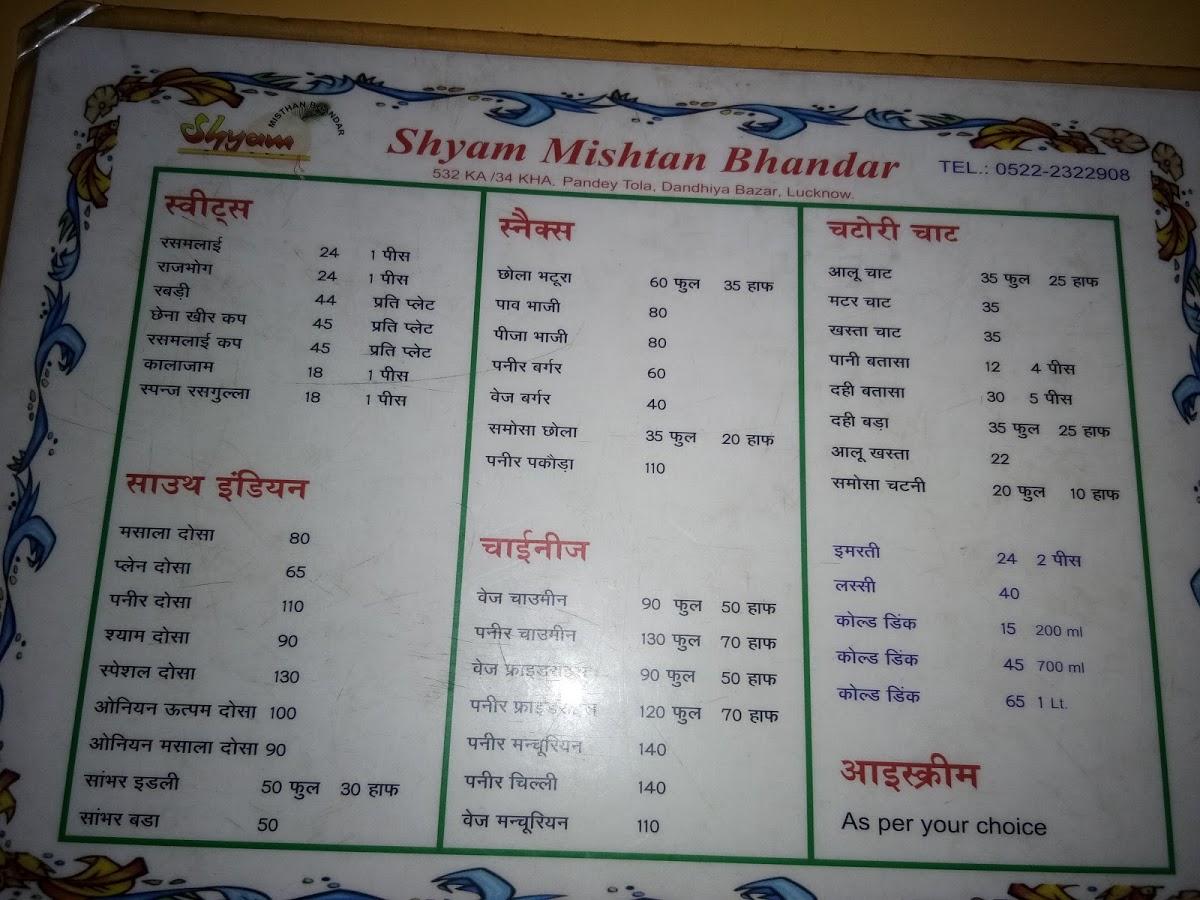 Shyam
MISTHAN BHANDAR
Shyam Mishtan Bhandar
532 KA /34 KHA. Pandey Tola, Dandhiya Bazar, Lucknow.
TEL.: 0522-2322908
स्वीट्स
रसमलाई 24 1 पीस
राजभोग 24 1 पीस
रबड़ी 44 प्रति प्लेट
छेना खीर कप 45 प्रति प्लेट
रसमलाई कप 45 प्रति प्लेट
कालाजाम 18 1 पीस
स्पन्ज रसगुल्ला 18 1 पीस
साउथ इंडियन
मसाला दोसा 80
प्लेन दोसा 65
पनीर दोसा 110
श्याम दोसा 90
स्पेशल दोसा 130
ओनियन ऊत्पम दोसा 100
ओनियन मसाला दोसा 90
सांभर इडली 50 फुल 30 हाफ
सांभर बडा 50
स्नैक्स
छोला भटूरा 60 फुल 35 हाफ
पाव भाजी 80
पीजा भाजी 80
पनीर बर्गर 60
वेज बर्गर 40
समोसा छोला 35 फुल 20 हाफ
पनीर पकौड़ा 110
चाईनीज
वेज चाउमीन 90 फुल 50 हाफ
पनीर चाउमीन 130 फुल 70 हाफ
वेज 90 फुल 50 हाफ
पनीर 120 फुल 70 हाफ
पनीर मन्चूरियन 140
पनीर चिल्ली 140
वेज मन्चूरियन 110
चटोरी चाट
आलू चाट 35 फुल 25 हाफ
मटर चाट 35
खस्ता चाट 35
पानी बतासा 12 4 पीस
दही बतासा 30 5 पीस
दही बड़ा 35 फुल 25 हाफ
आलू खस्ता 22
समोसा चटनी 20 फुल 10 हाफ
इमरती 24 2 पीस
लस्सी 40
कोल्ड डिंक 15 200 ml
कोल्ड डिंक 45 700 ml
कोल्ड डिंक 65 1 Lt.
आइस्क्रीम
As per your choice